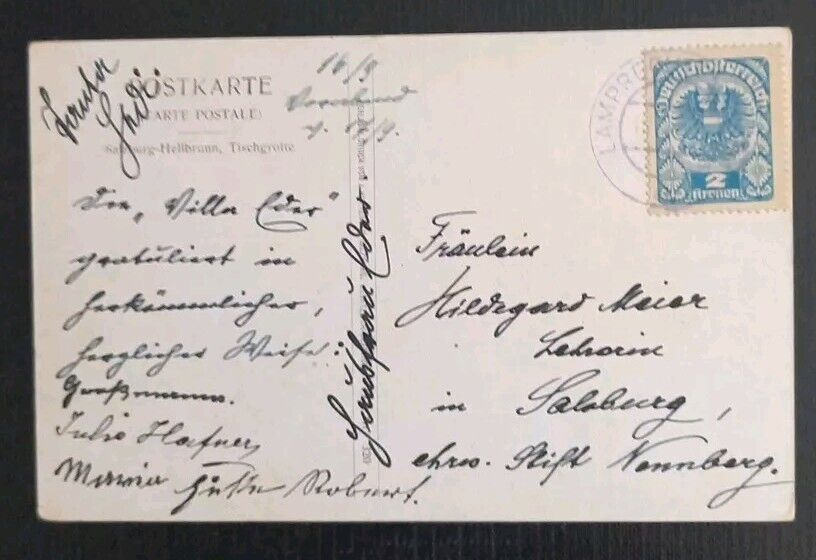 POSTKARTE
(CARTE POSTALE)
Salzburg-Hellbrunn, Tischgrotte
16/9
Die „Villa Eder“
gratuliert in
herkömmlicher,
herzlicher Weise:
Großmama.
Hafner,
Maria
Robert.
Eder.
Fräulein
Hildegard Meier
Lehrerin
in Salzburg,
Stift Nonnberg.
LAMPR
Deutschösterreich
2
Kronen